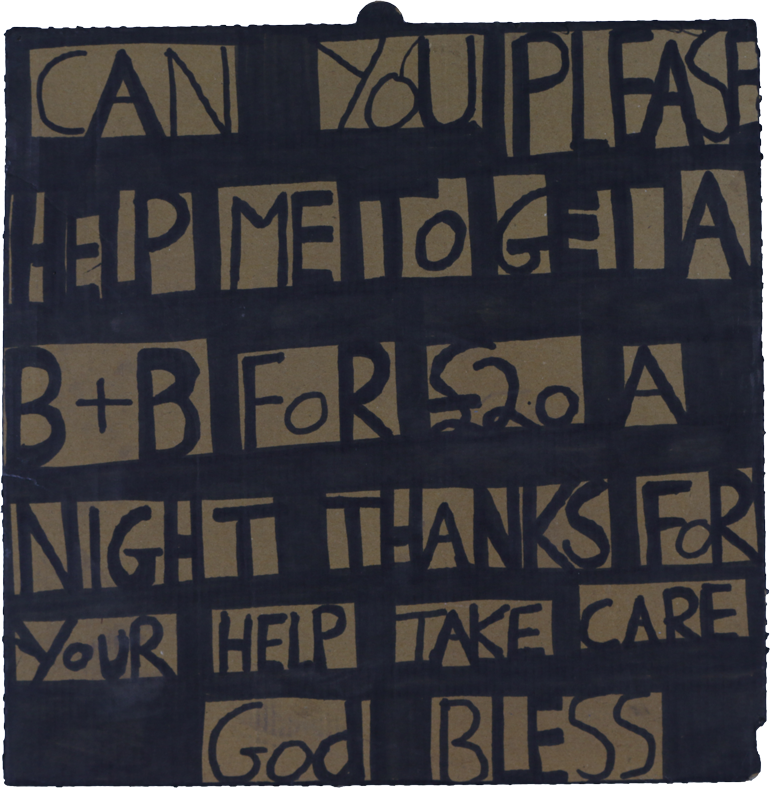 CAN YOU PLEASE
HELP ME TO GET A
B+B FOR £20 A
NIGHT THANKS FOR
YOUR HELP TAKE CARE
God BLESS